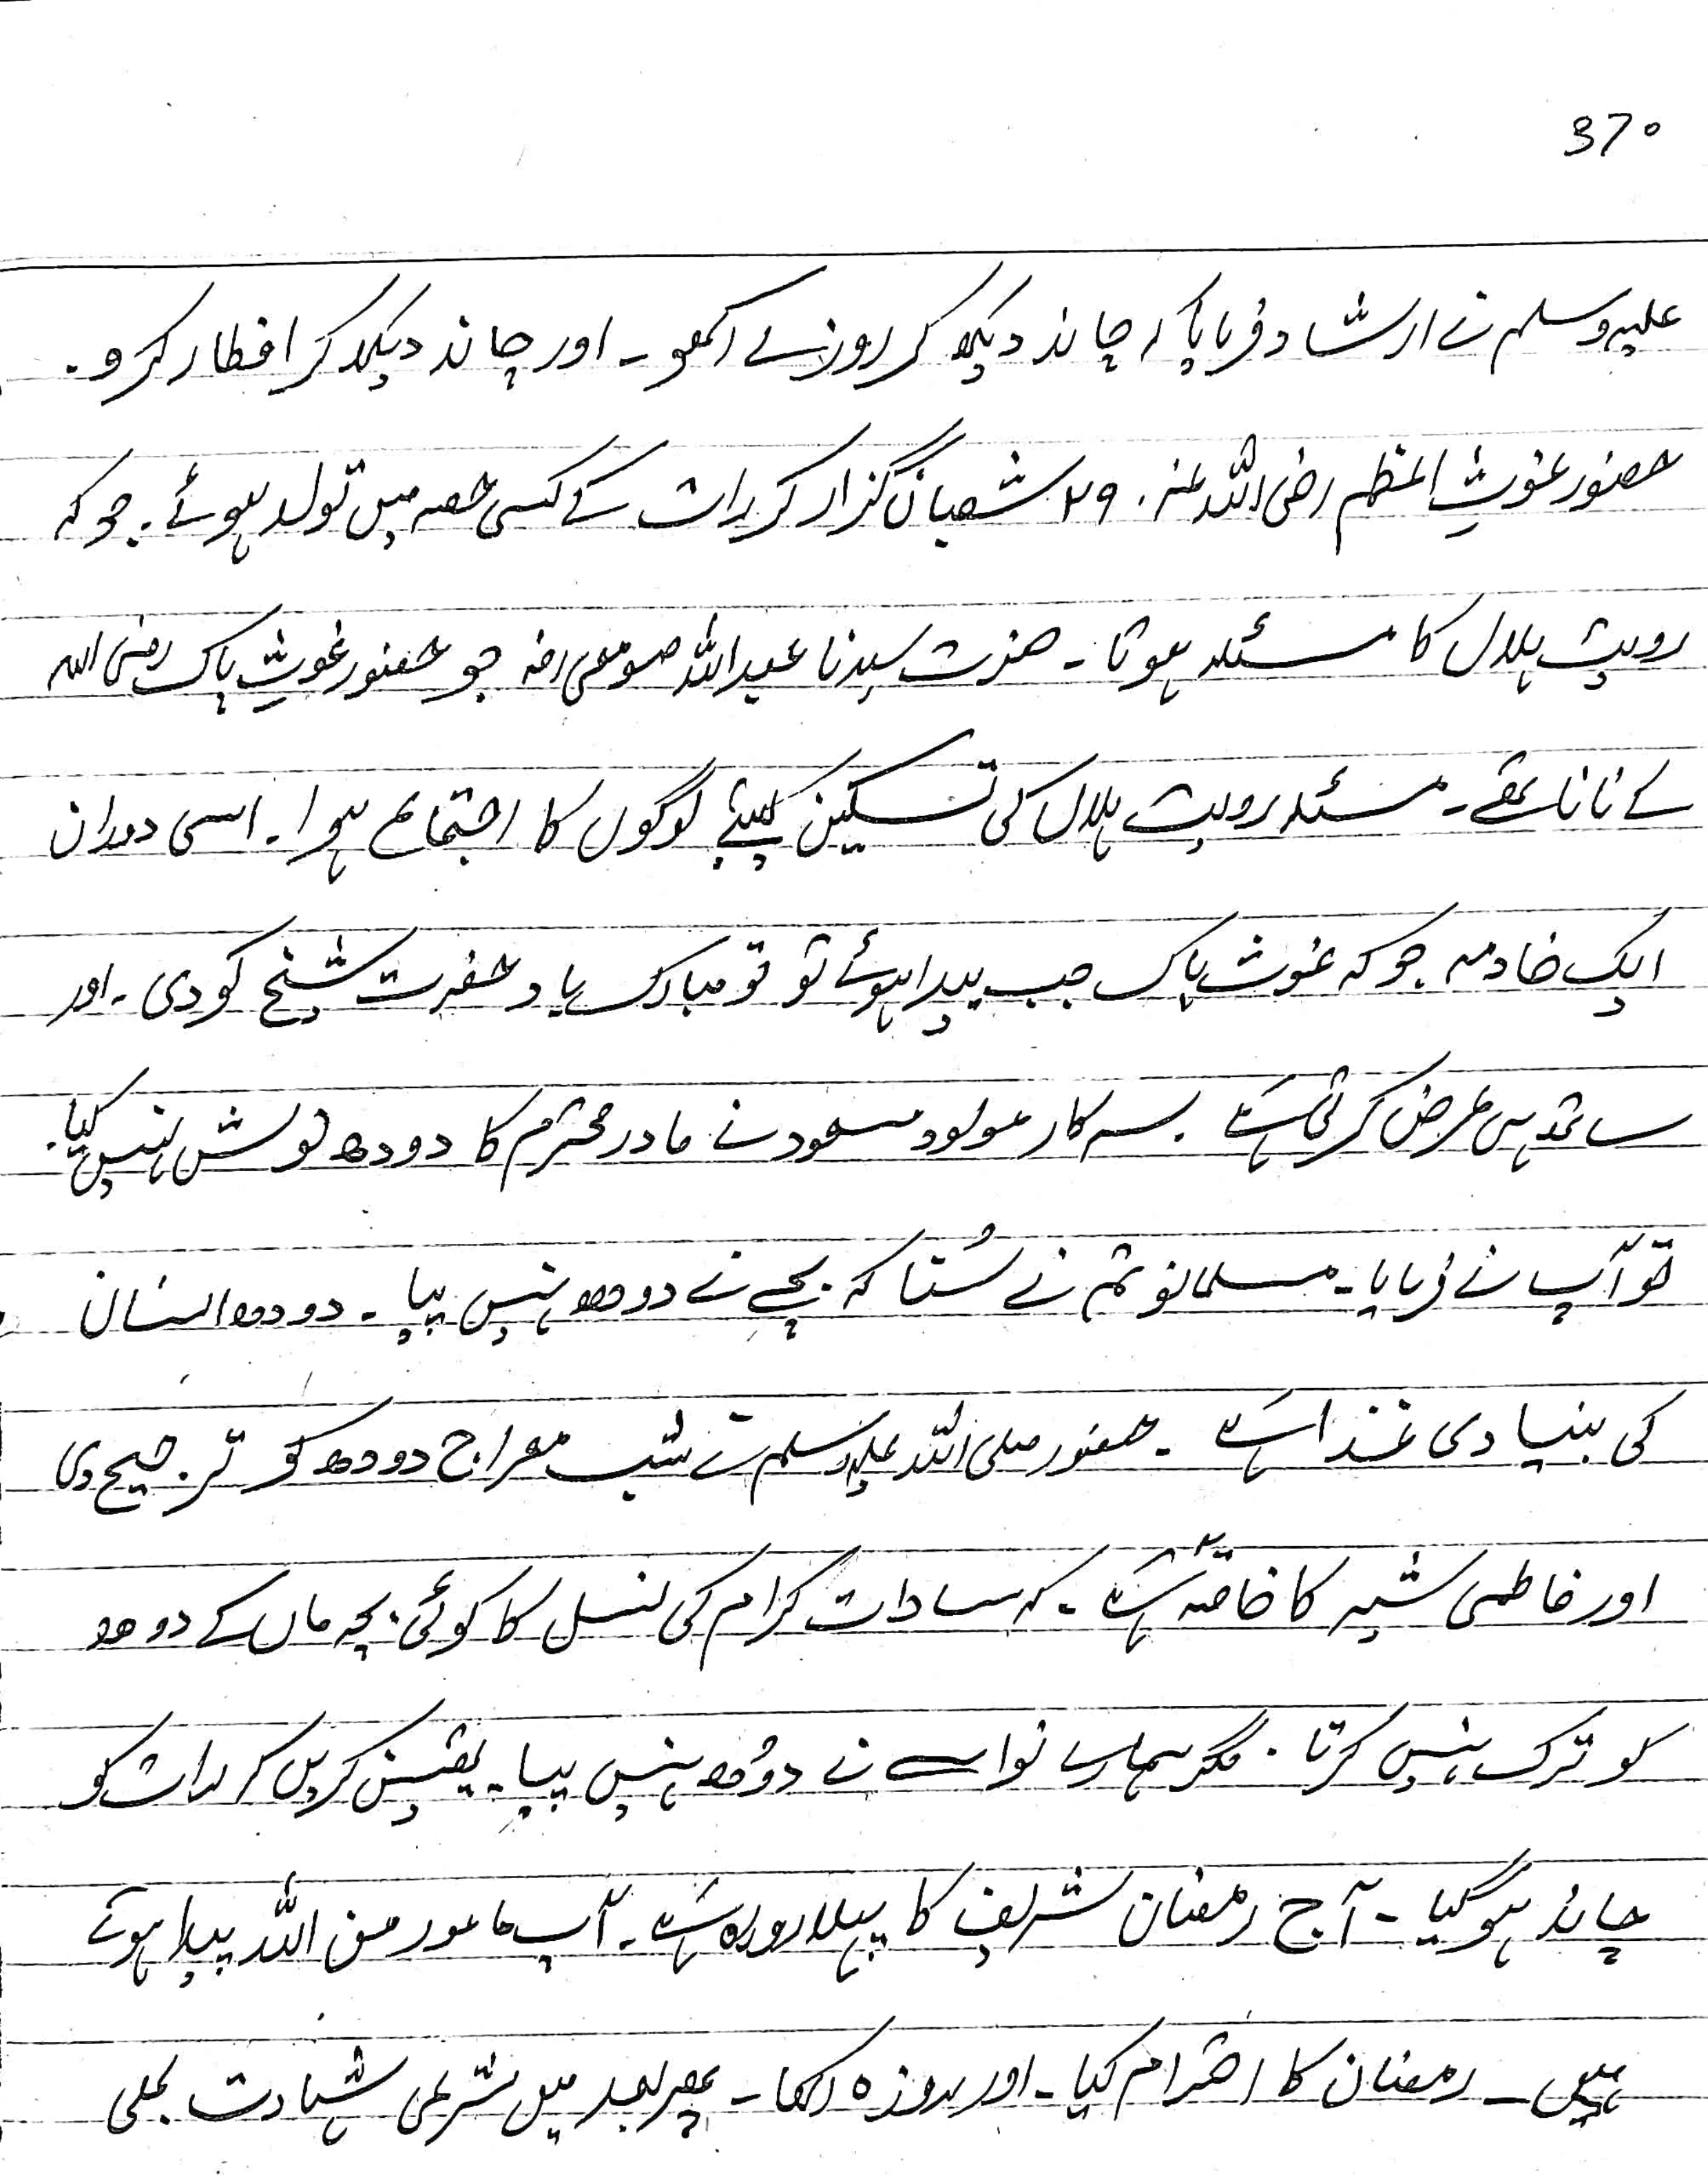 370
علیہ وسلم نے ارشاد فرمایا کہ چاند دیکھ کر روزے رکھو۔ اور چاند دیکھ کر افطار کرو۔
حضور غوث اعظم رضی اللہ عنہ۔ ۲۹ شعبان گزار کر رات کے کسی حصہ میں تولد ہوئے۔ جو کہ
رویت ہلال کا مسئلہ ہوتا۔ حضرت سیدنا عبداللہ صومعی رضہ جو حضور غوث پاک رضی اللہ
کے نانا تھے۔ مسئلہ رویت ہلال کی تسکین کیلئے لوگوں کا اجتماع ہوا۔ اسی دوران
ایک خادمہ جو کہ غوث پاک جب پیدا ہوئے تو تو مبارک باد حضرت شیخ کو دی۔ اور
ساتھ ہی عرض کرتی ہے۔ سرکار مولود مسعود نے مادر محترم کا دودھ نوش نہیں کیا۔
تو آپ نے فرمایا۔ مسلمانو تم نے سُنا کہ بچے نے دودھ نہیں پیا۔ دودھ انسان
کی بنیادی غذا ہے۔ حضور صلی اللہ علیہ وسلم نے شب معراج دودھ کو ترجیح دی
اور فاطمی شیر کا خاصّہ ہے۔ کہ سادات کرام کی نسل کا کوئی بچہ ماں کے دودھ
کو ترک نہیں کرتا۔ مگر ہمارے نواسے نے دُودھ نہیں پیا۔ یقین کریں کہ رات کو
چاند ہو گیا۔ آج رمضان شریف کا پہلا روزہ ہے۔ آپ مامور من اللہ پیدا ہوئے
ہیں۔ رمضان کا احترام کیا۔ اور روزہ رکھا۔ پھر بعد میں شرعی شہادت بھی